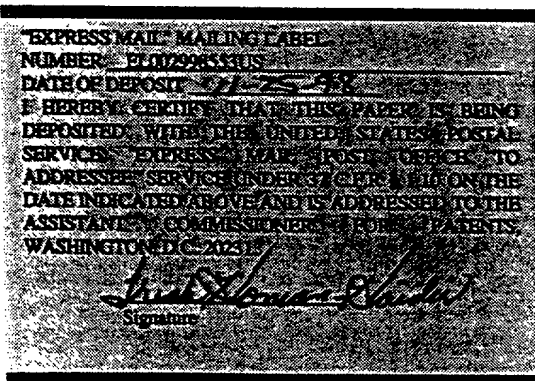 "EXPRESS MAIL" MAILING LABEL
NUMBER EL002998553US
DATE OF DEPOSIT 11-25-98
I HEREBY CERTIFY THAT THIS PAPER IS BEING
DEPOSITED WITH THE UNITED STATES POSTAL
SERVICES "EXPRESS MAIL POST OFFICE TO
ADDRESSEE" SERVICE UNDER 37 C.F.R. § 1.10 ON THE
DATE INDICATED ABOVE AND IS ADDRESSED TO THE
ASSISTANT COMMISSIONER FOR PATENTS,
WASHINGTON, D.C. 20231.
Signature